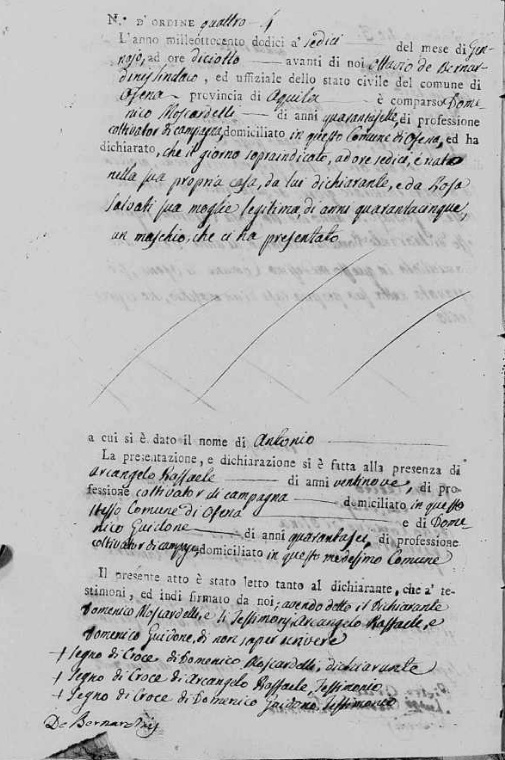 N.° D'ORDINE quattro 4
L'anno milleottocento dodici a' sedici del mese di Gen-
najo, ad ore diciotto avanti di noi Ottavio de Bernar-
dinis sindaco, ed uffiziale dello stato civile del comune di
Ofena provincia di Aquila è comparso Dome-
nico Moscardelli di anni quarantasette, di professione
coltivator di campagna, domiciliato in questo Comune di Ofena, ed ha
dichiarato, che il giorno sopraindicato, ad ore sedici, è nato
nella sua propria casa, da lui dichiarante, e da Rosa
Salvati sua moglie legitima, di anni quarantacinque,
un maschio, che ci ha presentato
a cui si è dato il nome di Antonio
La presentazione, e dichiarazione si è fatta alla presenza di
Arcangelo Raffaele di anni ventinove, di pro-
fessione coltivator di campagna domiciliato in questo
stesso Comune di Ofena e di Dome-
nico Guidone di anni quarantasei, di professione
coltivator di campagna, domiciliato in questo medesimo Comune
Il presente atto è stato letto tanto al dichiarante, che a' te-
stimoni, ed indi firmato da noi, avendo detto il Dichiarante
Domenico Moscardelli, e li Testimonj Arcangelo Raffaele, e
Domenico Guidone, di non saper scrivere
+ Segno di Croce di Domenico Moscardelli, dichiarante
+ Segno di Croce di Arcangelo Raffaele, Testimonio
+ Segno di Croce di Domenico Guidone, Testimonio
De Bernardinis